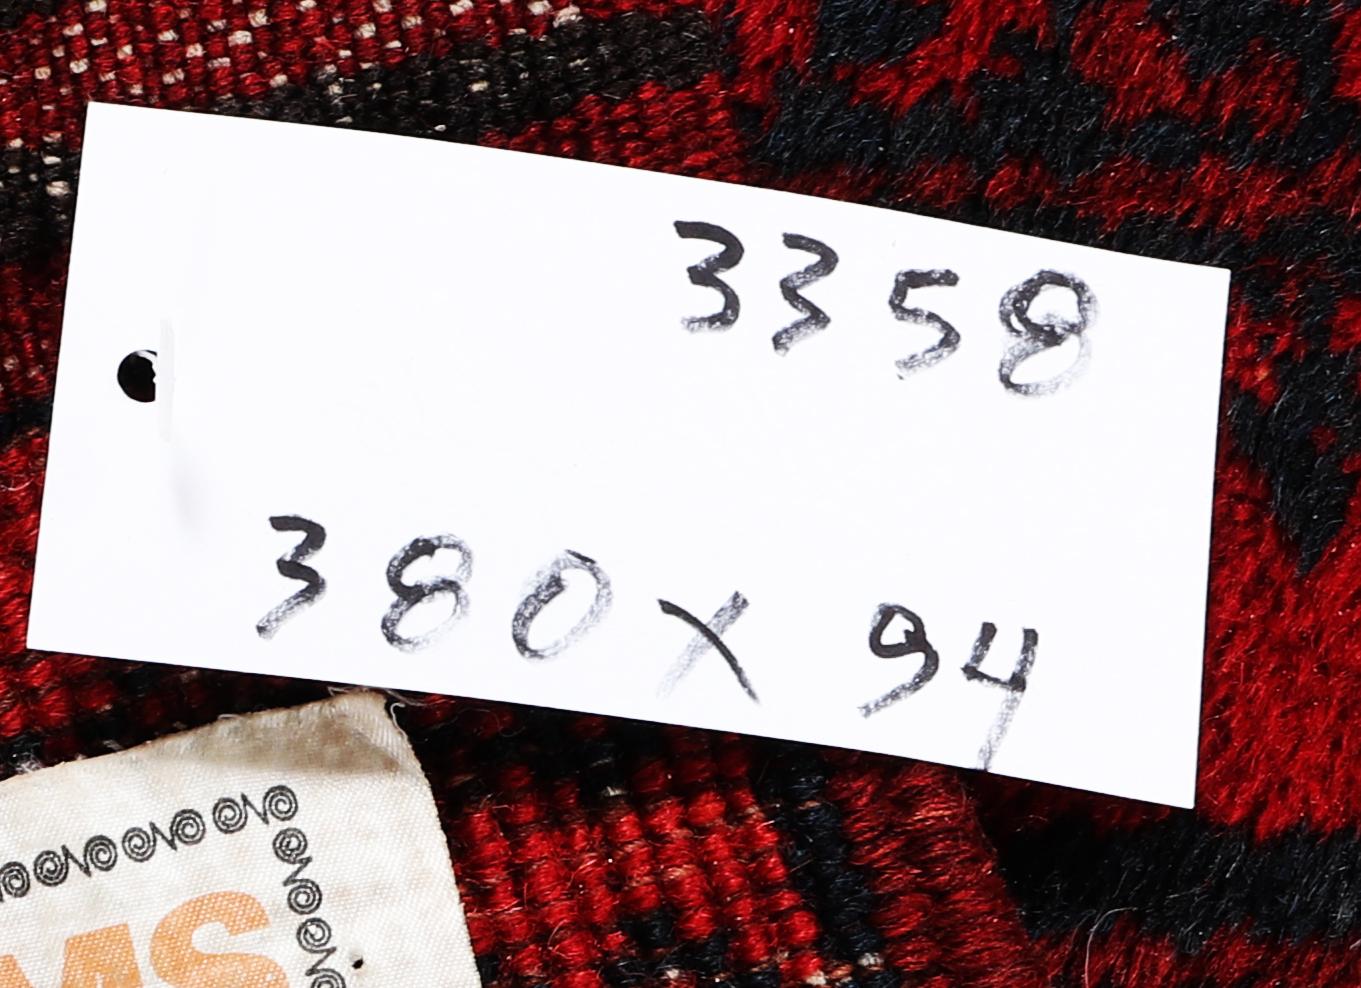 3358
380X94
MS